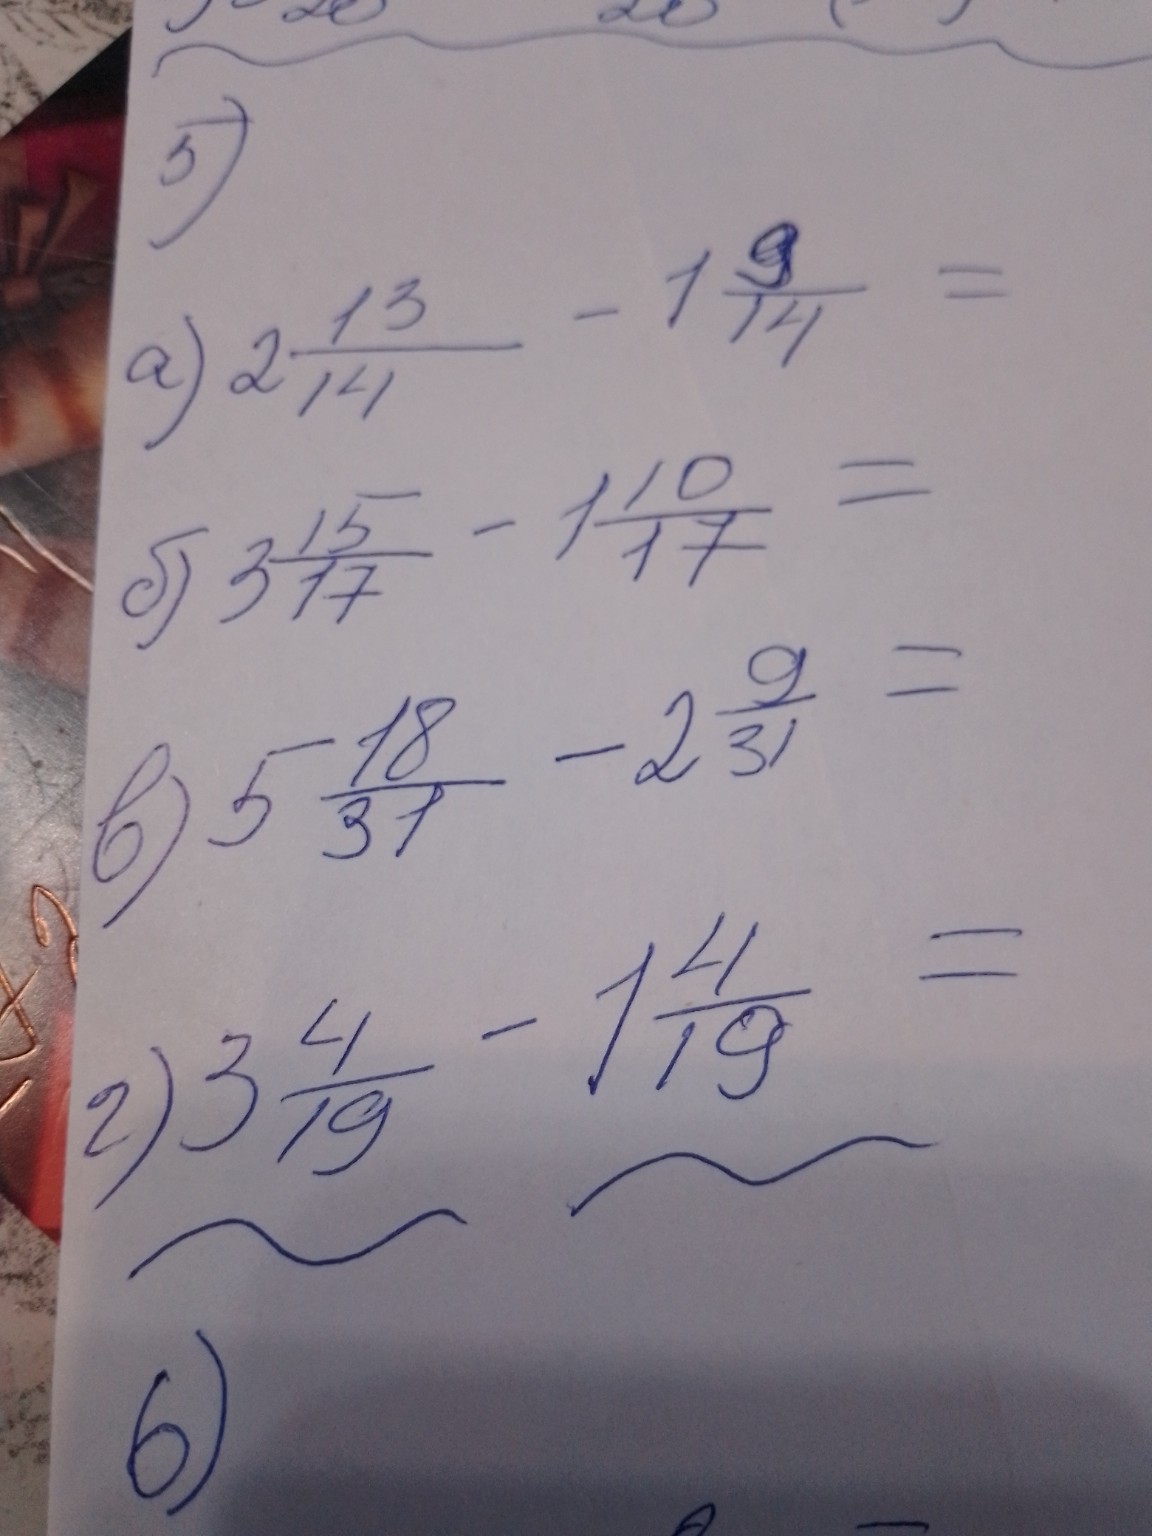 5)
а) 2 13/14 - 1 9/14 =
б) 3 15/17 - 1 10/17 =
в) 5 18/31 - 2 9/31 =
г) 3 4/19 - 1 4/19 =
6)